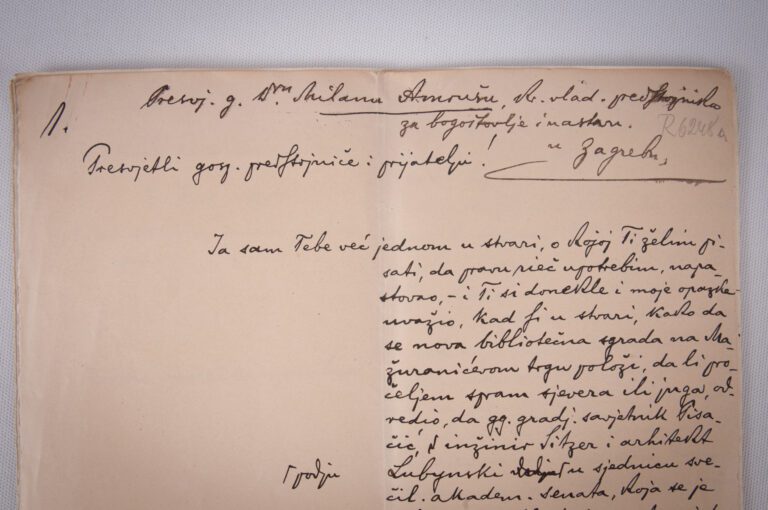 1.
Presvj. g. Drn Milanu Amrušu, kr. vlad. predstojniku
za bogoštovlje i nastavu.
R 6248 a
u Zagrebu,
Presvjetli gosp. predstojniče i prijatelju!
Ja sam Tebe već jednom u stvari, o kojoj Ti želim pi-
sati, da pravu rieč upotrebim, napa-
stovao, – i Ti si donekle i moje opazke
uvažio, kad si u stvari, kako da
se nova bibliotečna sgrada na Ma-
žuranićevom trgu položi, da li pro-
čeljem spram sjevera ili juga, od-
redio, da gg. gradj. savjetnik Pisa-
čić, i inžinir Sitzer i arhitekt
Lubynski u sjednicu sve-
podju
čil. akadem. senata, koja se je